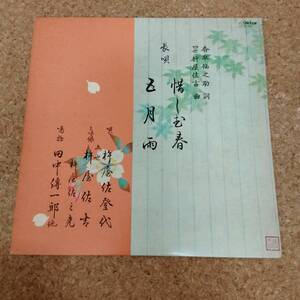 Victor
香取仙之助 詞
四世 杵屋佐吉 曲
長唄
惜しむ春
五月雨
唄 杵屋佐登代
三味線 杵屋佐吉
杵屋佐之
鳴物 田中傳一郎 他